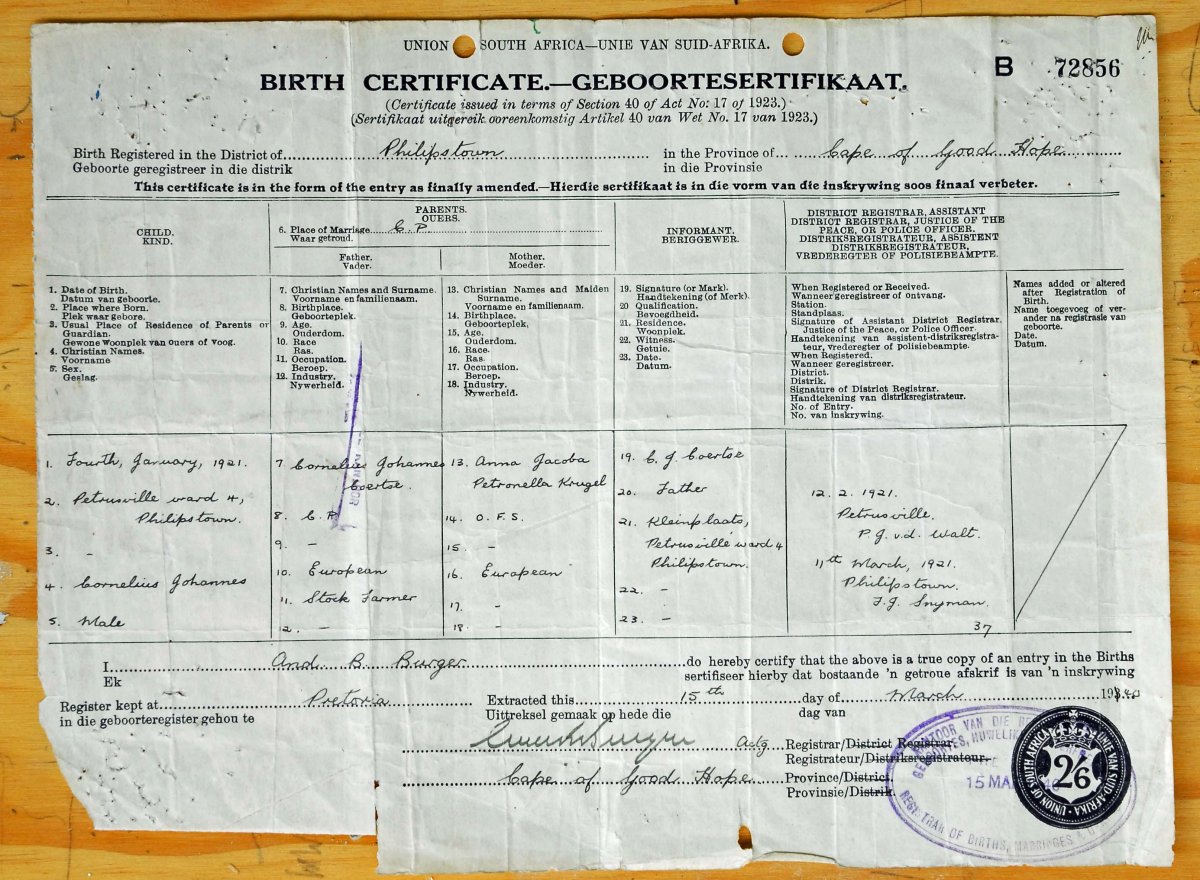 UNION SOUTH AFRICA—UNIE VAN SUID-AFRIKA.
B 72856
BIRTH CERTIFICATE.—GEBOORTESERTIFIKAAT.
(Certificate issued in terms of Section 40 of Act No: 17 of 1923.)
(Sertifikaat uitgereik ooreenkomstig Artikel 40 van Wet No. 17 van 1923.)
Birth Registered in the District of Philipstown in the Province of Cape of Good Hope
Geboorte geregistreer in die distrik in die Provinsie
This certificate is in the form of the entry as finally amended.—Hierdie sertifikaat is in die vorm van die inskrywing soos finaal verbeter.
CHILD.
KIND.
PARENTS.
OUERS.
6. Place of Marriage C.P.
Waar getroud.
Father.
Vader.
Mother.
Moeder.
INFORMANT.
BERIGGEWER.
DISTRICT REGISTRAR, ASSISTANT
DISTRICT REGISTRAR, JUSTICE OF THE
PEACE, OR POLICE OFFICER.
DISTRIKSREGISTRATEUR, ASSISTENT
DISTRIKSREGISTRATEUR,
VREDEREGTER OF POLISIEBEAMPTE.
1. Date of Birth.
Datum van geboorte.
2. Place where Born.
Plek waar gebore.
3. Usual Place of Residence of Parents or
Guardian.
Gewone Woonplek van ouers of Voog.
4. Christian Names.
Voorname
5. Sex.
Geslag.
7. Christian Names and Surname.
Voorname en familienaam.
8. Birthplace.
Geboorteplek.
9. Age.
Ouderdom.
10. Race
Ras.
11. Occupation.
Beroep.
12. Industry.
Nywerheid.
13. Christian Names and Maiden
Surname.
Voorname en familienaam.
14. Birthplace.
Geboorteplek.
15. Age.
Ouderdom.
16. Race.
Ras.
17. Occupation.
Beroep.
18. Industry.
Nywerheid.
19. Signature (or Mark).
Handtekening (of Merk).
20 Qualification.
Bevoegdheid.
21. Residence.
Woonplek.
22. Witness.
Getuie.
23. Date.
Datum.
When Registered or Received.
Wanneer geregistreer of ontvang.
Station.
Standplaas.
Signature of Assistant District Registrar.
Justice of the Peace, or Police Officer.
Handtekening van assistent-distriksregistra-
teur, vrederegter of polisiebeampte.
When Registered.
Wanneer geregistreer.
District.
Distrik.
Signature of District Registrar.
Handtekening van distriksregistrateur.
No. of Entry.
No. van inskrywing.
Names added or altered
after Registration of
Birth.
Name toegevoeg of ver-
ander na registrasie van
geboorte.
Date.
Datum.
1. Fourth, January, 1921.
2. Petrusville ward 4,
Philipstown.
3. -
4. Cornelius Johannes
5. Male
7 Cornelius Johannes
Coertse.
8. C.P.
9. -
10. European
11. Stock Farmer
12. -
13. Anna Jacoba
Petronella Krugel
14. O.F.S.
15. -
16. European
17. -
18. -
19. C. J. Coertse
20. Father
21. Kleinplaats,
Petrusville ward 4
Philipstown.
22. -
23. -
12. 2. 1921.
Petrusville.
P. J. v.d. Walt.
11th March, 1921.
Philipstown.
F. J. Snyman.
37
I And. B. Burger do hereby certify that the above is a true copy of an entry in the Births
Ek sertifiseer hierby dat bostaande 'n getroue afskrif is van 'n inskrywing
Register kept at Pretoria Extracted this 15th day of March
in die geboorteregister gehou te Uittreksel gemaak op hede die dag van
Actg Registrar/District Registrar
Registrateur/Distriksregistrateur.
Cape of Good Hope Province/District.
Provinsie/Distrik.
KANTOOR VAN DIE
GEBOORTES, HUWELIK
15 MA
REGISTRAR OF BIRTHS, MARRIAGES
UNION OF SOUTH AFRICA · UNIE VAN SUID-AFRIKA
2/6